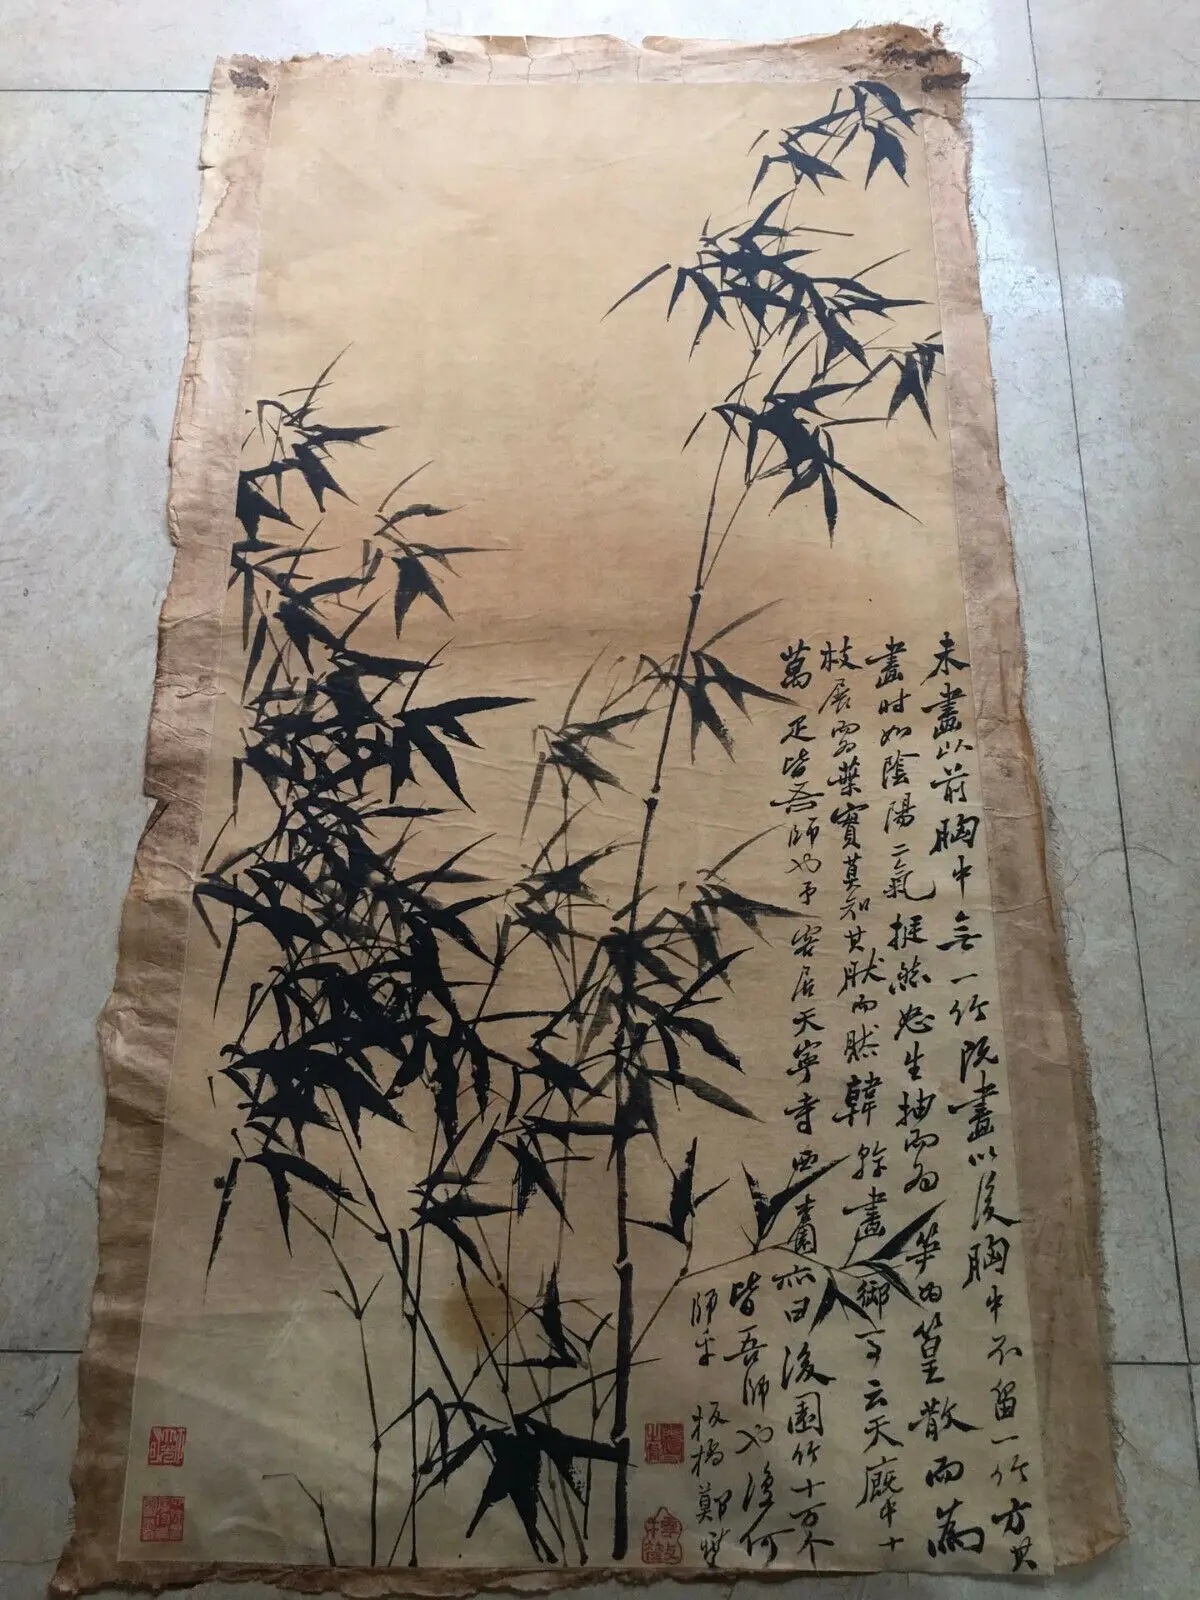 未畫以前胸中無一竹既畫以後胸中不留一竹方其
畫时如陰陽二氣挺然怒生抽而為笋為篁散而為
枝展而為葉實莫知其肰而肰韓幹畫御马云天廄中十
萬疋皆吾師也予客居天寧寺西園亦曰後園竹十万个
皆吾師也復何
師乎 板橋鄭燮